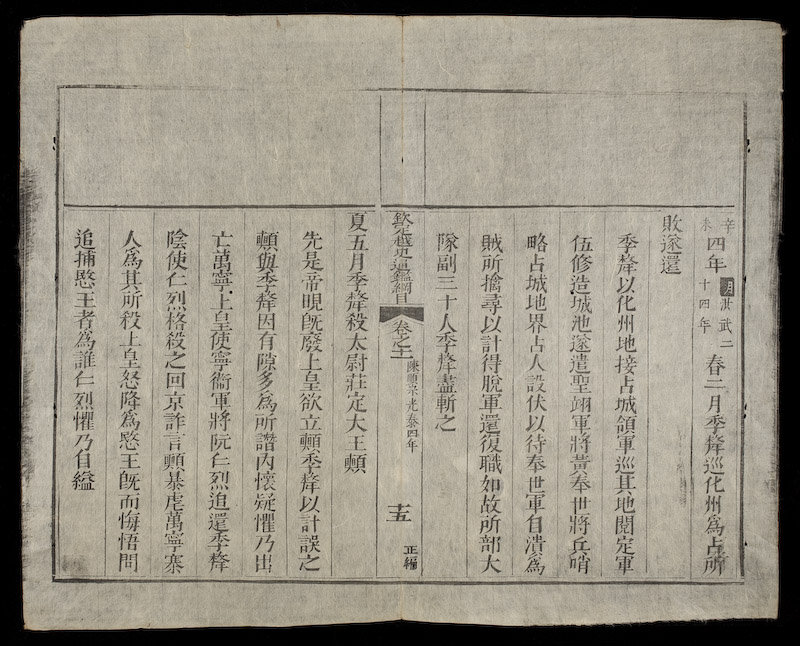 辛未四年明洪武二十四年春二月季犛巡化州爲占所
敗遂還
季犛以化州地接占城領軍巡其地閱定軍
伍修造城池遂遣聖翊軍將黃奉世將兵哨
略占城地界占人設伏以待奉世軍自潰爲
賊所擒尋以計得脫軍還復職如故所部大
隊副三十人季犛盡斬之
欽定越史通鑑綱目 卷之十一 陳順宗光泰四年 十五 正編
夏五月季犛殺太尉莊定大王顊
先是帝晛既廢上皇欲立顊季犛以計誤之
顊與季犛因有隙多爲所譖內懷疑懼乃出
亡萬寧上皇使寧衞軍將阮仁烈追還季犛
陰使仁烈格殺之回京詐言顊暴虐萬寧寨
人爲其所殺上皇怒降爲愍王既而悔悟問
追捕愍王者爲誰仁烈懼乃自縊